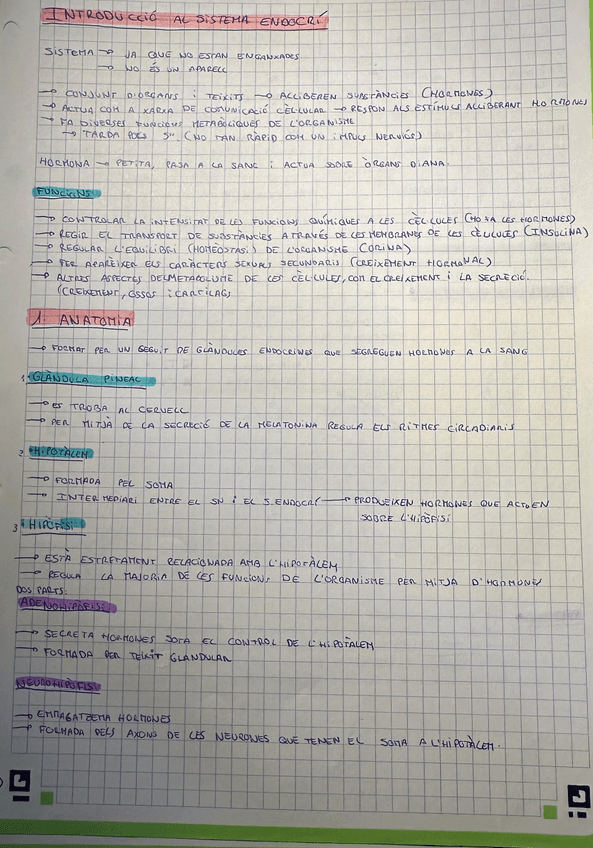 INTRODUCCIÓ AL SISTEMA ENDOCRÍ
SISTEMA → JA QUE NO ESTAN ENGANXADES
→ NO ÉS UN APARELL
→ CONJUNT D'ÒRGANS I TEIXITS → ALLIBEREN SUBSTÀNCIES (HORMONES)
→ ACTUA COM A XARXA DE COMUNICACIÓ CÈL·LULAR → RESPON ALS ESTÍMULS ALLIBERANT HORMONES
→ FA DIVERSES FUNCIONS METABÒLIQUES DE L'ORGANISME
→ TARDA POCS S" (NO TAN RÀPID COM UN IMPULS NERVIÓS)
HORMONA → PETITA, PASA A LA SANC I ACTUA SOBRE ÒRGANS DIANA.
FUNCIONS
→ CONTROLAR LA INTENSITAT DE LES FUNCIONS QUÍMIQUES A LES CÈL·LULES (HO FA LES HORMONES)
→ REGIR EL TRANSPORT DE SUBSTÀNCIES A TRAVÉS DE LES MEMBRANES DE LES CÈL·LULES (INSULINA)
→ REGULAR L'EQUILIBRI (HOMEÒSTASI) DE L'ORGANISME (ORINA)
→ FER APARÈIXER ELS CARÀCTERS SEXUALS SECUNDARIS (CREIXEMENT HORMONAL)
→ ALTRES ASPECTES DEL METABOLISME DE LES CÈL·LULES, COM EL CREIXEMENT I LA SECRECIÓ.
(CREIXEMENT, OSSOS I CARTÍLAG)
1. ANATOMIA
→ FORMAT PER UN SEGUIT DE GLÀNDULES ENDOCRINES QUE SEGREGUEN HORMONES A LA SANG
1. GLÀNDULA PINEAL
→ ES TROBA AL CERVELL
→ PER MITJÀ DE LA SECRECIÓ DE LA MELATONINA REGULA ELS RITMES CIRCADIARIS
2. HIPOTÀLEM
→ FORMADA PEL SOMA
→ INTERMEDIARI ENTRE EL SN I EL S.ENDOCRÍ → PRODUEIXEN HORMONES QUE ACTUEN
SOBRE L'HIPÒFISI
3. HIPÒFISI
→ ESTÀ ESTRETAMENT RELACIONADA AMB L'HIPOTÀLEM
→ REGULA LA MAJORIA DE LES FUNCIONS DE L'ORGANISME PER MITJÀ D'HORMONES
DOS PARTS:
ADENOHIPÒFISI:
→ SECRETA HORMONES SOTA EL CONTROL DE L'HIPOTÀLEM
→ FORMADA PER TEIXIT GLANDULAR
NEUROHIPÒFISI
→ EMMAGATZEMA HORMONES
→ FORMADA PELS AXONS DE LES NEURONES QUE TENEN EL SOMA A L'HIPOTÀLEM.